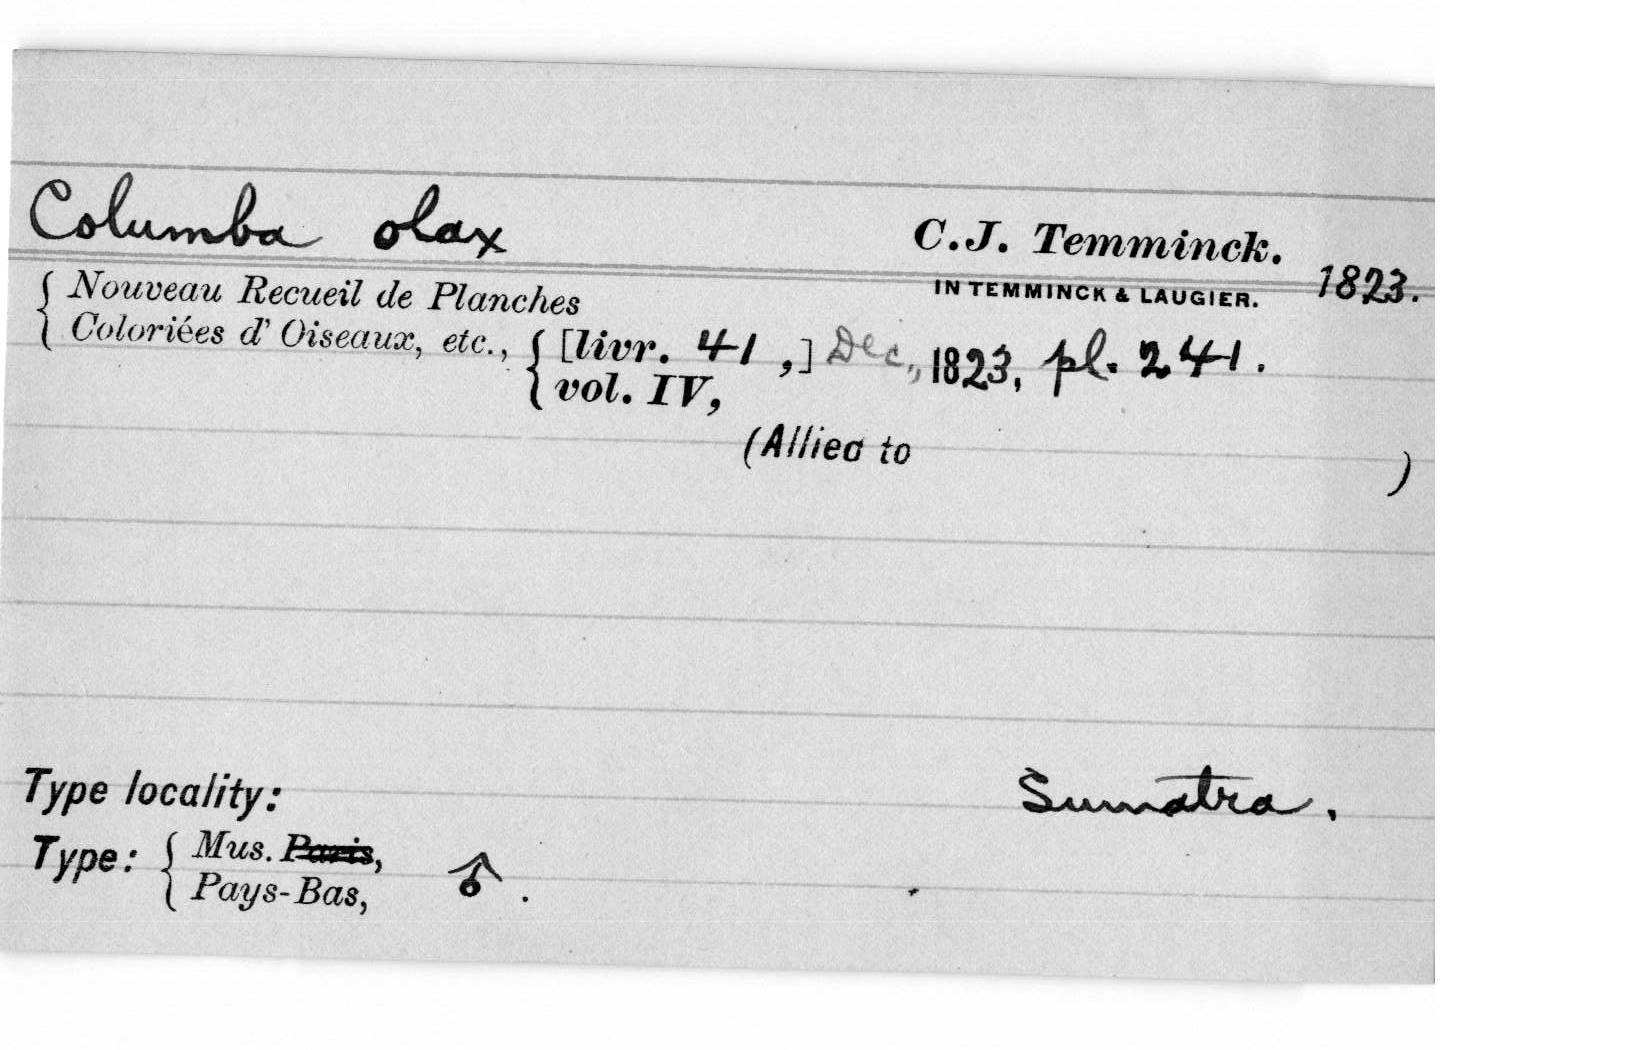 Columba olax C.J. Temminck.
IN TEMMINCK & LAUGIER. 1823.
{ Nouveau Recueil de Planches
Coloriées d' Oiseaux, etc., { [livr. 41 ,] Dec., 1823, pl. 241.
vol. IV,
(Allied to )
Type locality: Sumatra.
Type: { Mus. Paris,
Pays-Bas, ♂.